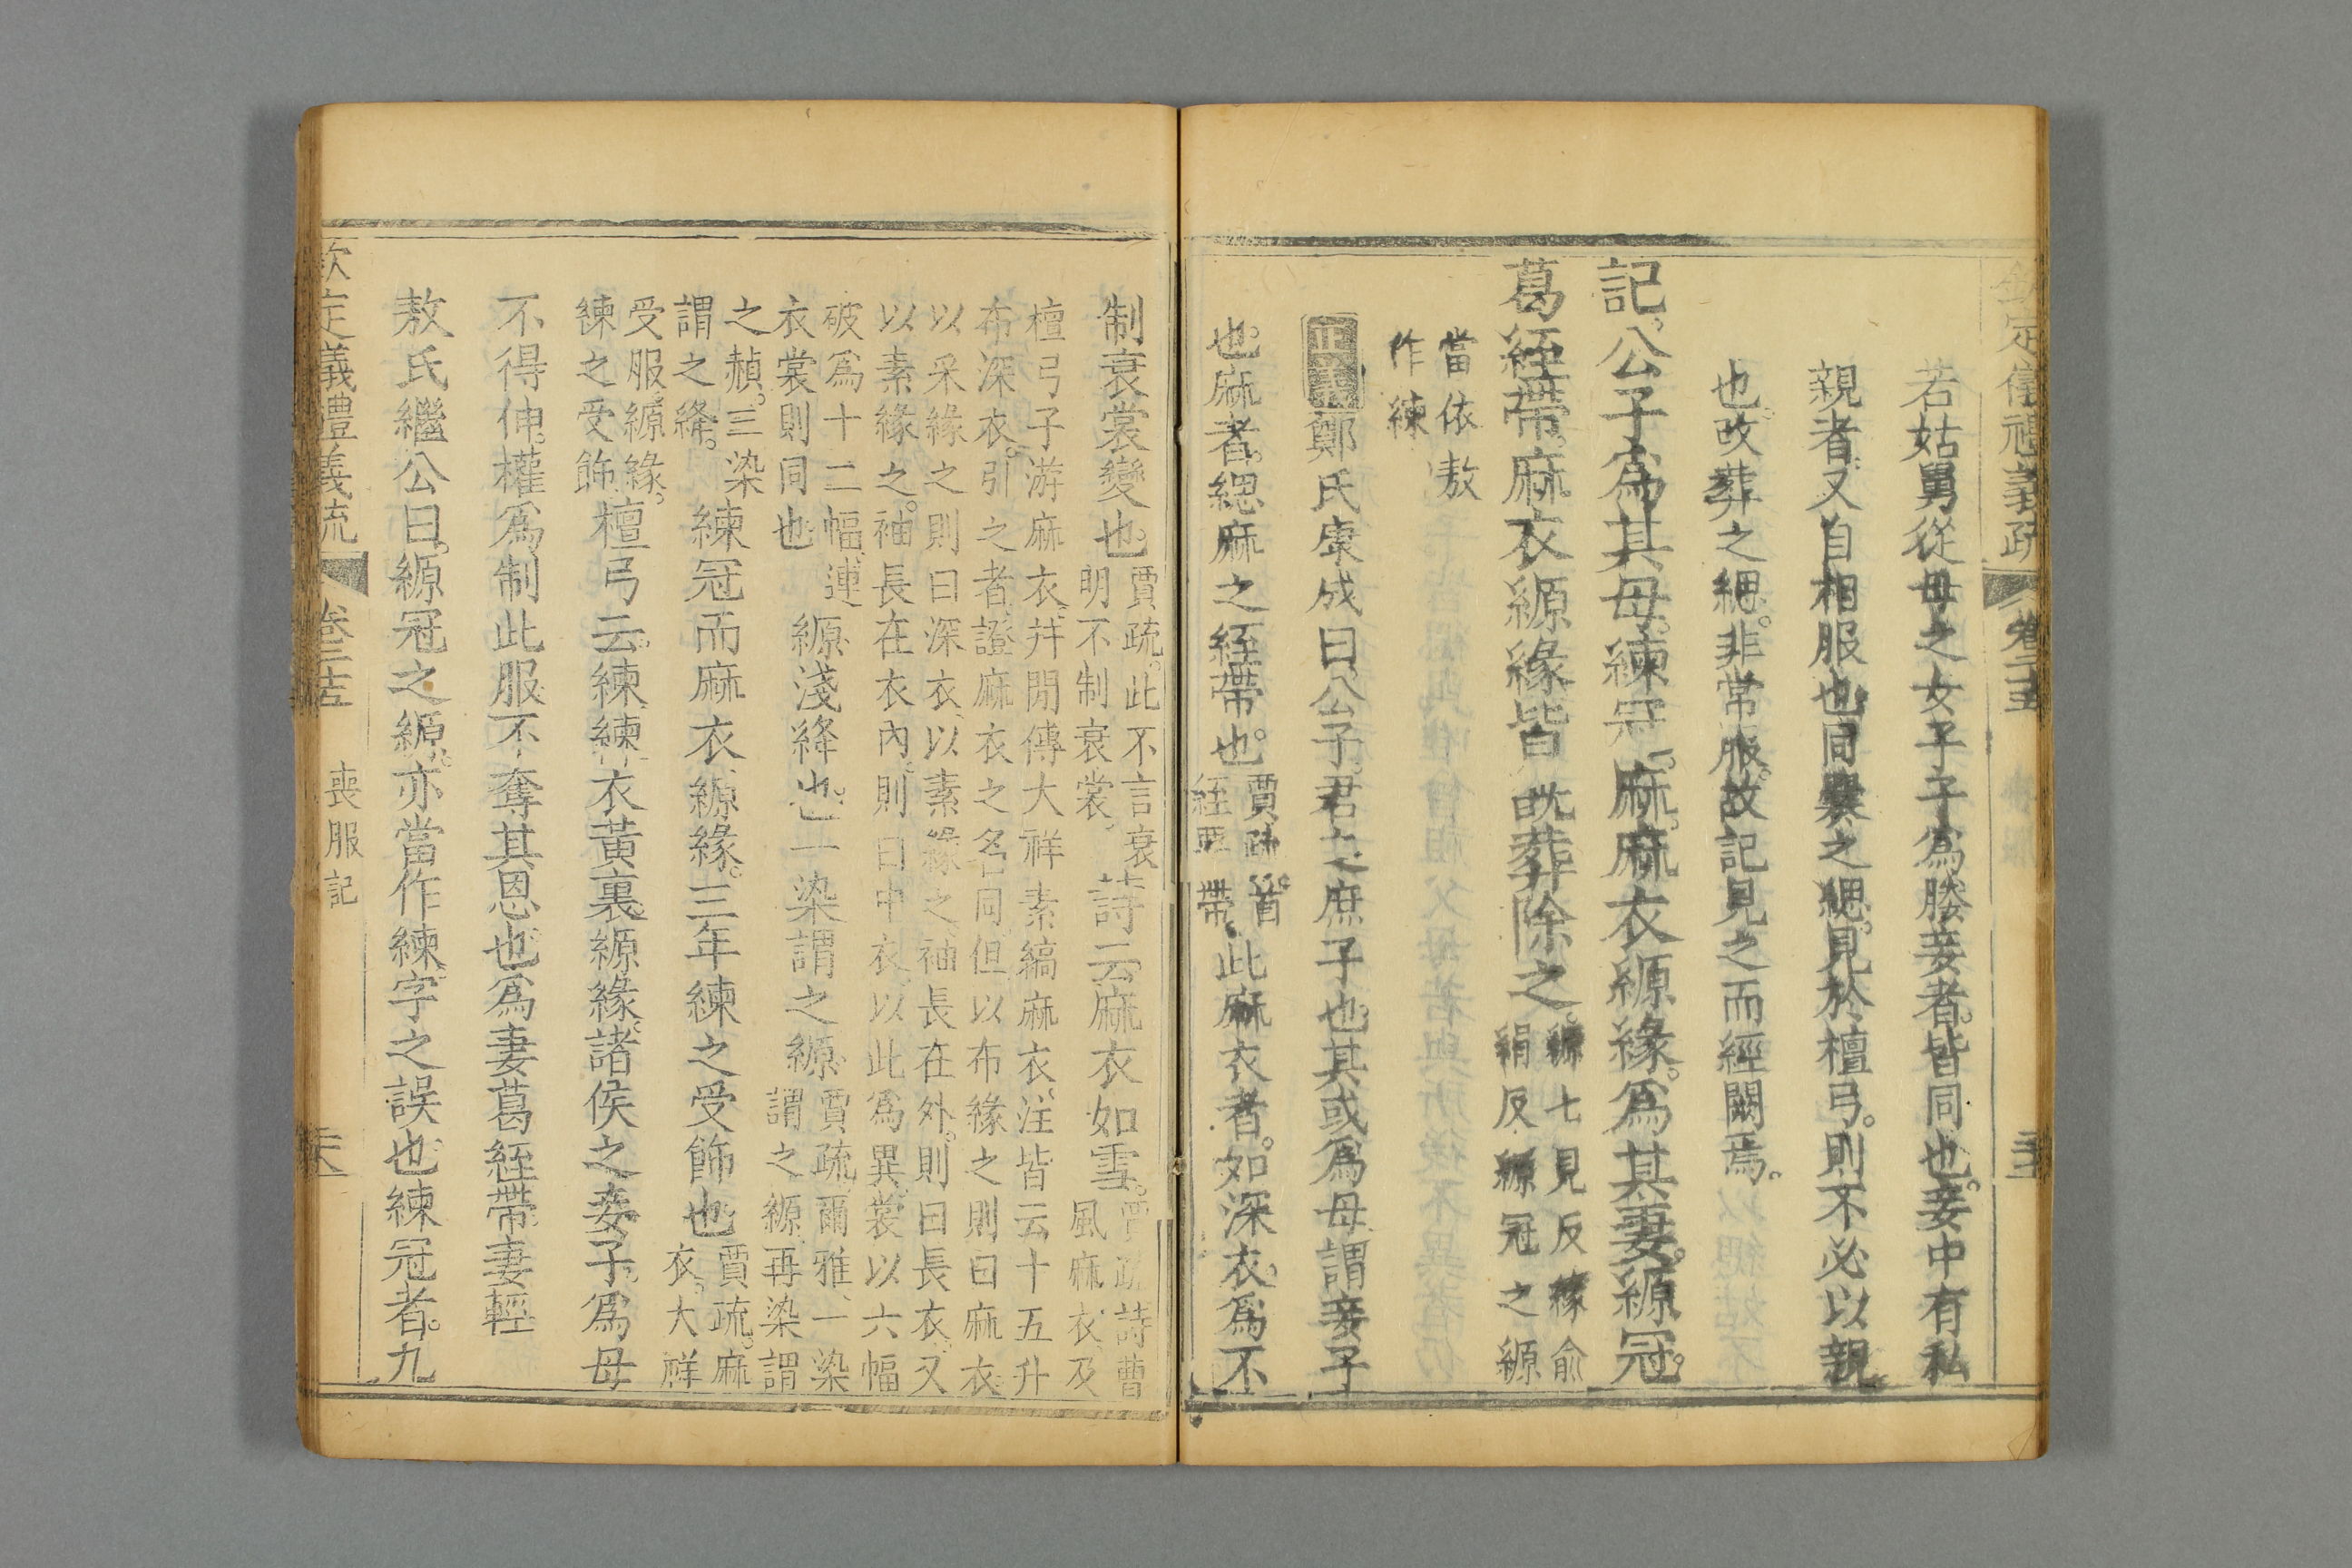 欽定儀禮義疏 卷二十五
若姑舅從母之女子子為媵妾者。皆同也。妾中有私
親者。又自相服也。同爨之緦。見於檀弓。則不必以親
也。改葬之緦。非常服。故記見之而經闕焉。
記。公子為其母。練冠。麻。麻衣縓緣。為其妻。縓冠。
葛絰帶。麻衣縓緣。皆既葬除之。縓七見反緣俞
絹反縓冠之縓
當依敖
作練
正義 鄭氏康成曰。公子。君之庶子也。其或為母。謂妾子
也。麻者。緦麻之絰帶也。賈疏。首
絰要帶。此麻衣者。如深衣。為不
制衰裳變也。賈疏。此不言衰
明不制衰裳。詩云。麻衣如雪。賈疏詩曹
風麻衣。及
檀弓子游麻衣。幷閒傳大祥素縞麻衣。注皆云十五升
布深衣。引之者。證麻衣之名同。但以布緣之。則曰麻衣
以采緣之。則曰深衣。以素緣之。袖長在外。則曰長衣。又
以素緣之。袖長在衣內。則曰中衣。以此為異。裳以六幅
破為十二幅。連
衣裳則同也。縓淺絳也。一染謂之縓。賈疏。爾雅。一染
謂之縓。再染謂
之赬。三染
謂之絳。練冠而麻衣縓緣。三年練之受飾也。賈疏。麻
衣。大祥
受服。縓緣。
練之受飾。檀弓云。練。練衣黃裏縓緣。諸侯之妾子。為母
不得伸。權為制此服。不奪其恩也。為妻葛絰帶。妻輕
敖氏繼公曰。縓冠之縓。亦當作練。字之誤也。練冠者。九
欽定儀禮義疏 卷二十五 喪服記